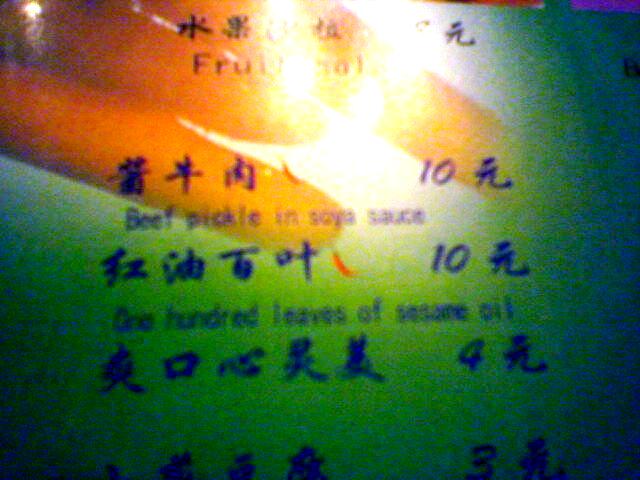 水果沙拉 元
Fruit Sal
酱牛肉 10元
Beef pickle in soya sauce
红油百叶 10元
One hundred leaves of sesame oil
爽口心灵美 4元
豆腐 3元